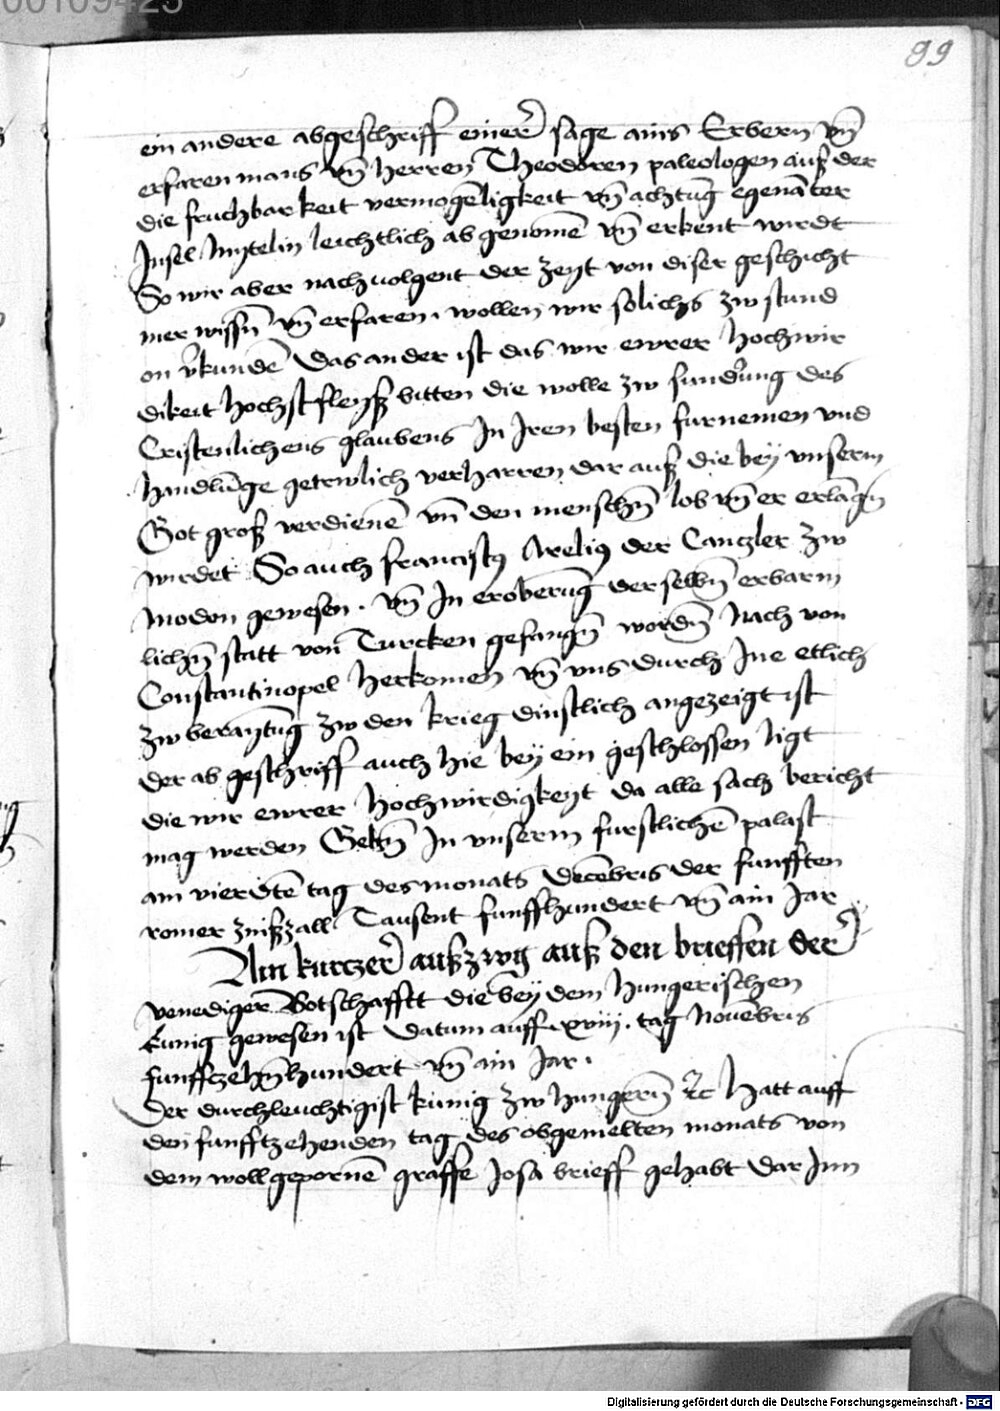 00109425
99
ein andere abgeschrifft einer sage ains Erbern vn̄
erfaren mans vn̄ herren Theodoren paleologen auß der
die fruchbarkeit vermogēligkeit vn̄ achtūg egenāter
Insel Mytelin leichtlich abgenomē vn̄ erkent wirdt
So wir aber nachuolgent der zeyt von diser geschicht
mer wissn̄ vn̄ erfaren, wollen wir solichs zw stund
on v̄kundē Das ander ist das wir ewrer hochwir
dikeit hochst fleysß bitten die wolle zw fundrung des
Cristenlichens glaubens In Iren besten furnemen vnd
handlūge getrwlich verharren dar auß die bey vnserm
Got groß verdienē vn̄ den menschn̄ lob vn̄ er erlāgn̄
wirdet So auch franciscus Arelius der Canczler zw
Modon gewesen. vn̄ In eroberūg derselbn̄ erbarm
lichn̄ statt von Turcken gefangn̄ wordn̄ Nach von
Constantinopel herkomen vn̄ vns durch Ine etlich
zw beraytūg zw den krieg dinstlich angezeigt ist
der abgeschrifft auch hie bey ein geschlossen ligt
die wir ewrer hochwirdigkeyt da alle sach bericht
mag werden Gebn̄ In vnserm furstlichē palast
am vierdtē tag des monats Decēbris der funfften
romer zinßzall Tausent funffhundert vn̄ ain Jar
Ain kurczer außzwg auß den brieffen der
venediger Botschafftt die bey dem hungerischen
kunig gewesen ist Datum auff xviij. tag Nouēbris
funffczehn̄hundert vn̄ ain Jar.
Der durchleuchtigist kunig zw hungern̄ ꝛc Hatt auff
den funfftzehenden tag des obgemelten monats von
dem wollgepornē graffe Josa brieff gehabt dar Inn
Digitalisierung gefördert durch die Deutsche Forschungsgemeinschaft - DFG